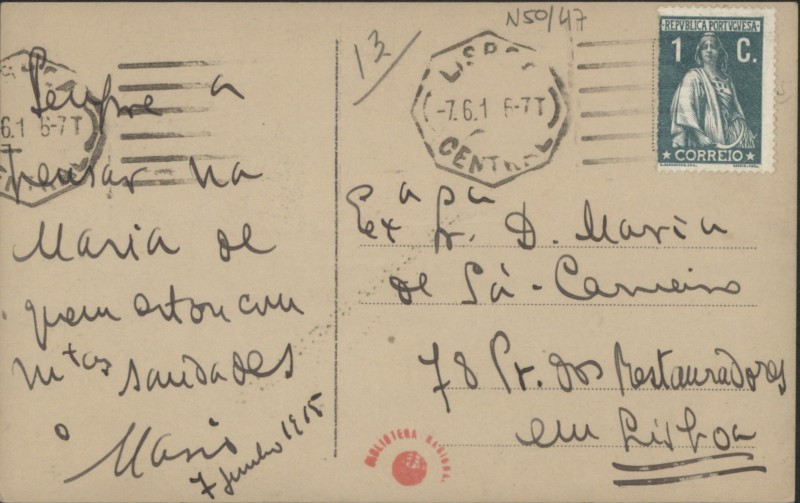 N50/47
13
REPVBLICA PORTVGVESA
1 C.
CORREIO
LISBOA
-7.6.1 6-7T
CENTRAL
6.1 6-7T
Sempre a
pensar na
Maria de
quem estou com
mtas saudades
o Mario
7 Junho 1915
Exa Sra D. Maria
de Sá-Carneiro
78 Pr. dos Restauradores
em Lisboa
BIBLIOTECA NACIONAL